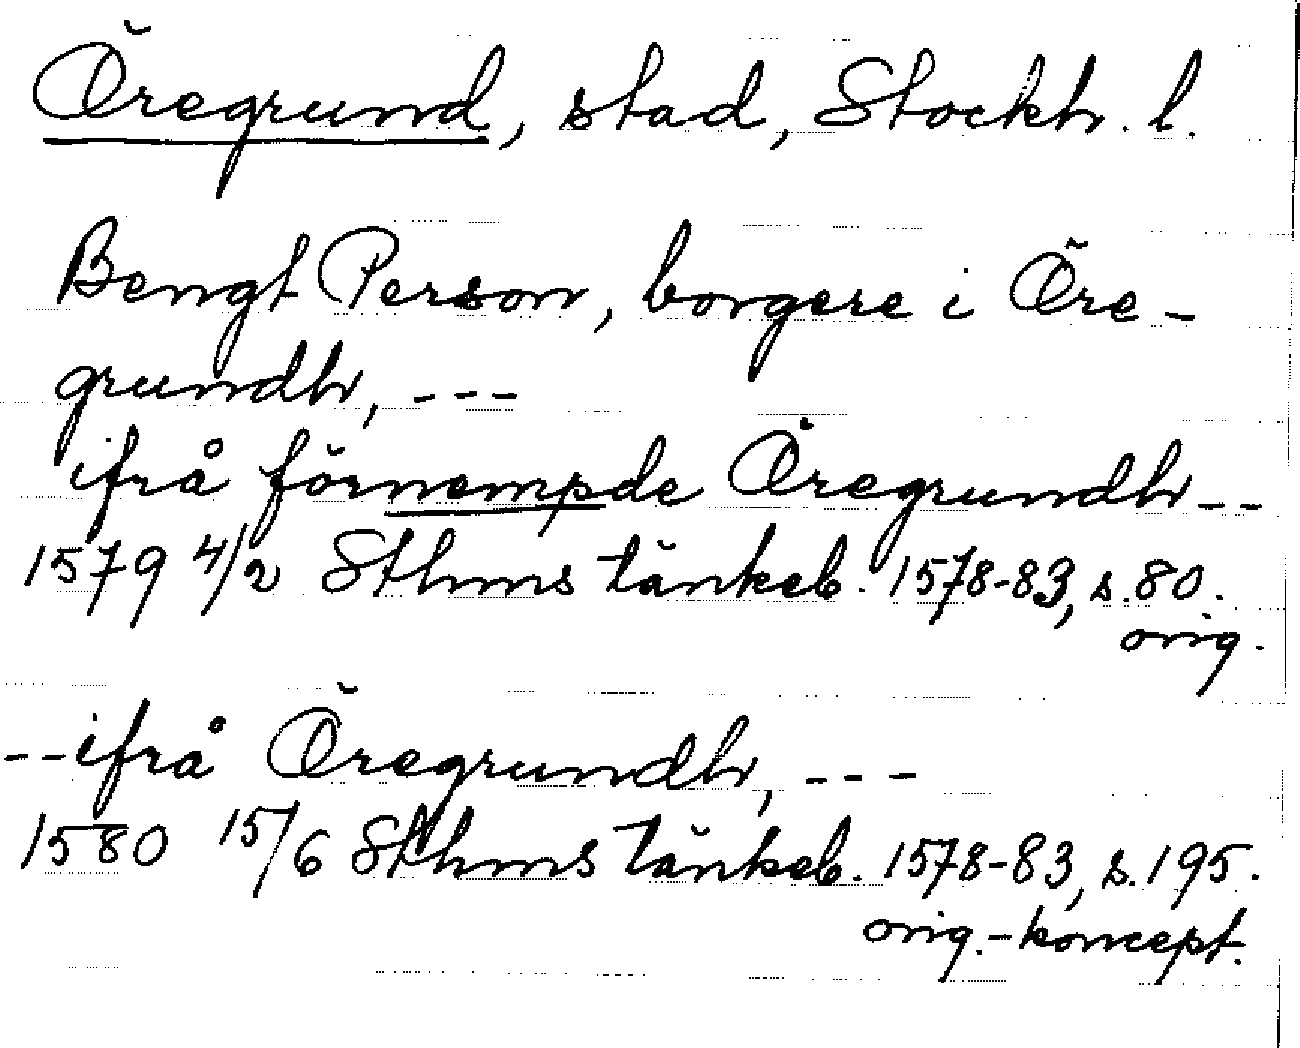 Öregrund, stad, Stockh. l.
Bengt Person, borgere i Öre-
grundh, ---
ifrå förnempde Öregrundh--
1579 4/2 Sthms tänkeb. 1578-83, s. 80.
orig.
--ifrå Öregrundh, ---
1580 15/6 Sthms tänkeb. 1578-83, s. 195.
orig.-koncept.